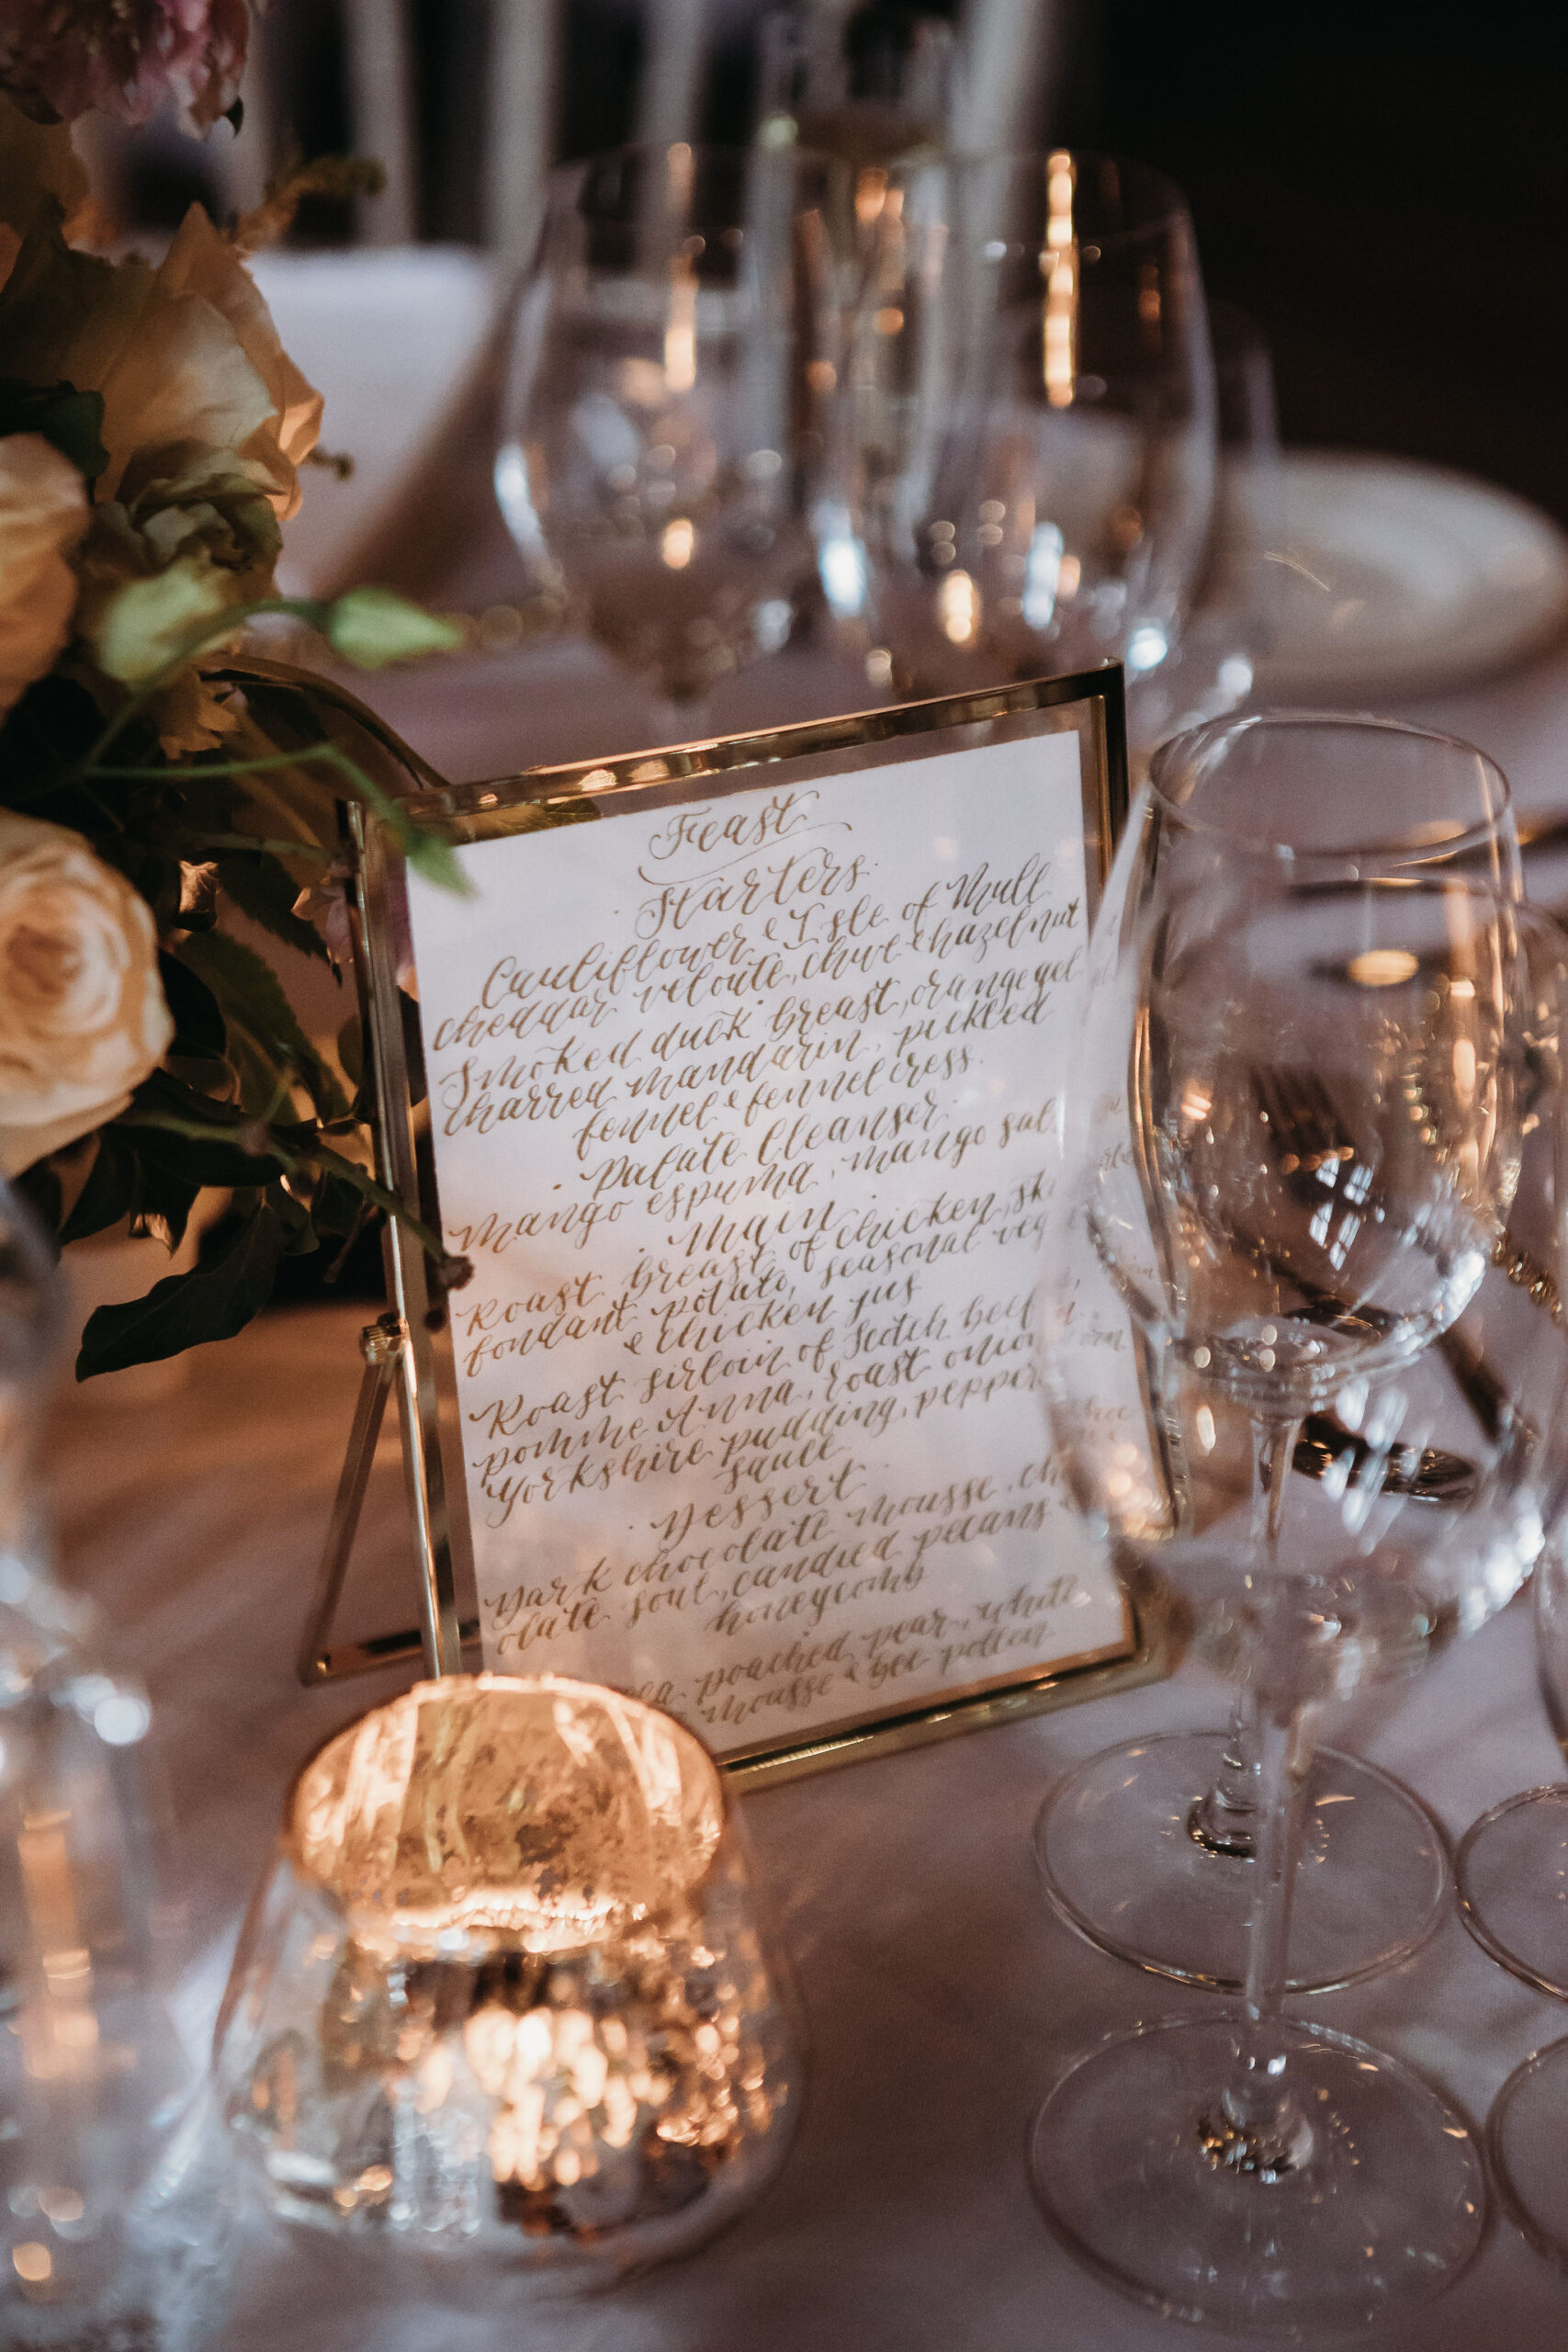 Feast
Starters
Cauliflower & Isle of Mull
cheddar veloute, chive & hazelnut
Smoked duck breast, orange gel
charred mandarin, pickled
fennel & fennel cress.
Palate Cleanser
Mango espuma, mango sal
Main
Roast breast of chicken,
fondant potato, seasonal veg
& chicken jus
Roast sirloin of Scotch beef
pomme Anna, roast onion
Yorkshire pudding, pepper
sauce
Dessert
Dark chocolate mousse, ch
olate soil, candied pecans
honeycomb
poached pear, white
mousse & bee pollen